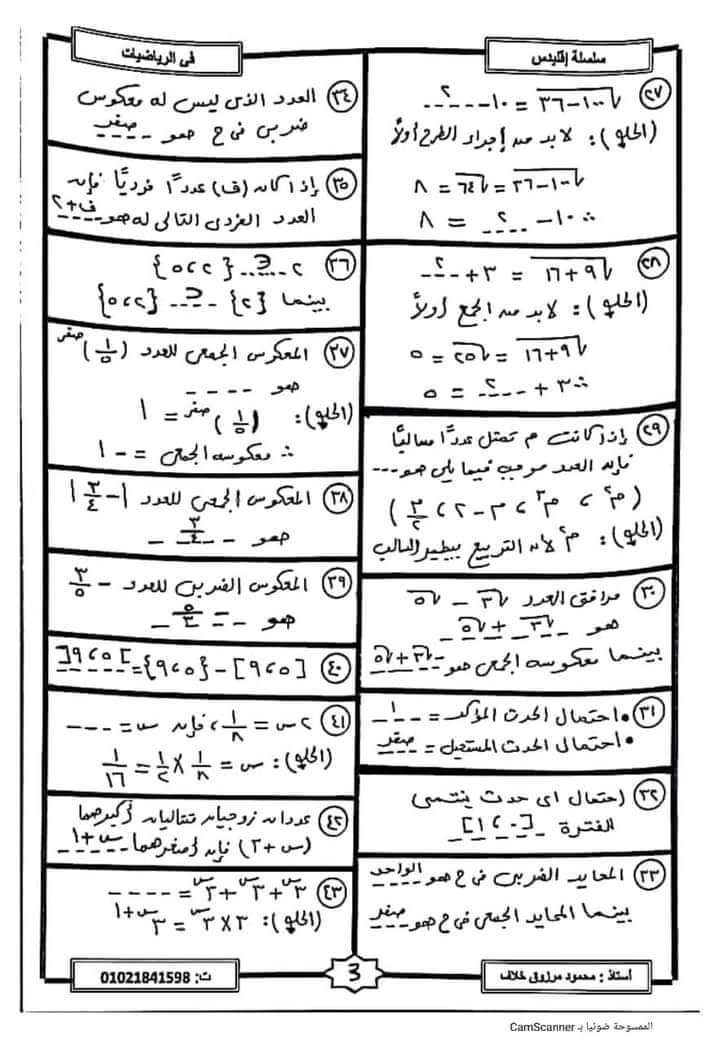 سلسلة إقليدس
فى الرياضيات
٢٧ √(١٠٠-٣٦) = ١٠-__٢__
(الحل): لابد من إجراء الطرح أولاً
√(١٠٠-٣٦) = √٦٤ = ٨
∴ ١٠-__٢__ = ٨
٢٨ √(٩+١٦) = ٣+__٢__
(الحل): لابد من الجمع أولاً
√(٩+١٦) = √٢٥ = ٥
∴ ٣+__٢__ = ٥
٢٩ إذا كانت م تمثل عددًا سالبًا
فإن العدد موجب فيما يلى هو ---
(م٢ ، م٣ ، م-٢ ، م/٢)
(الحل): م٢ لأن التربيع يبطير السالب
٣٠ مرافق العدد √٣ - √٥
هو √٣ + √٥
بينما معكوسه الجمعى هو -√٣+√٥
٣١ • احتمال الحدث المؤكد = __١__
• احتمال الحدث المستحيل = صفر
٣٢ احتمال اى حدث ينتمى
الفترة [٠،١]
٣٣ المحايد الضربى فى ح هو الواحد
بينما المحايد الجمعى فى ح هو صفر
٣٤ العدد الذى ليس له معكوس
ضربى فى ح هو صفر
٣٥ إذا كان (ف) عددًا فرديًا فإن
العدد الفردى التالى له هو ف+٢
٣٦ ٢ __∈__ {٢،٥}
بينما {٢} __⊂__ {٢،٥}
٣٧ المعكوس الجمعى للعدد (١/٥)صفر
هو ----
(الحل): (١/٥)صفر = ١
∴ معكوسه الجمعى = -١
٣٨ المعكوس الجمعى للعدد |-٣/٤|
هو -٣/٤
٣٩ المعكوس الضربى للعدد -٣/٥
هو -٥/٣
٤٠ [٥،٩] - {٥،٩} = ]٥،٩[
٤١ ٢س = ١/٨ ، فإن س = ---
(الحل): س = ١/٨ × ١/٢ = ١/١٦
٤٢ عددان زوجيان متتاليان أكبرهما
(س+٣) فإن أصغرهما س+١
٤٣ ٣س + ٣س + ٣س = ----
(الحل): ٣ × ٣س = ٣س+١
أستاذ : محمود مرزوق خلاف
3
ت: 01021841598
الممسوحة ضوئيا بـ CamScanner